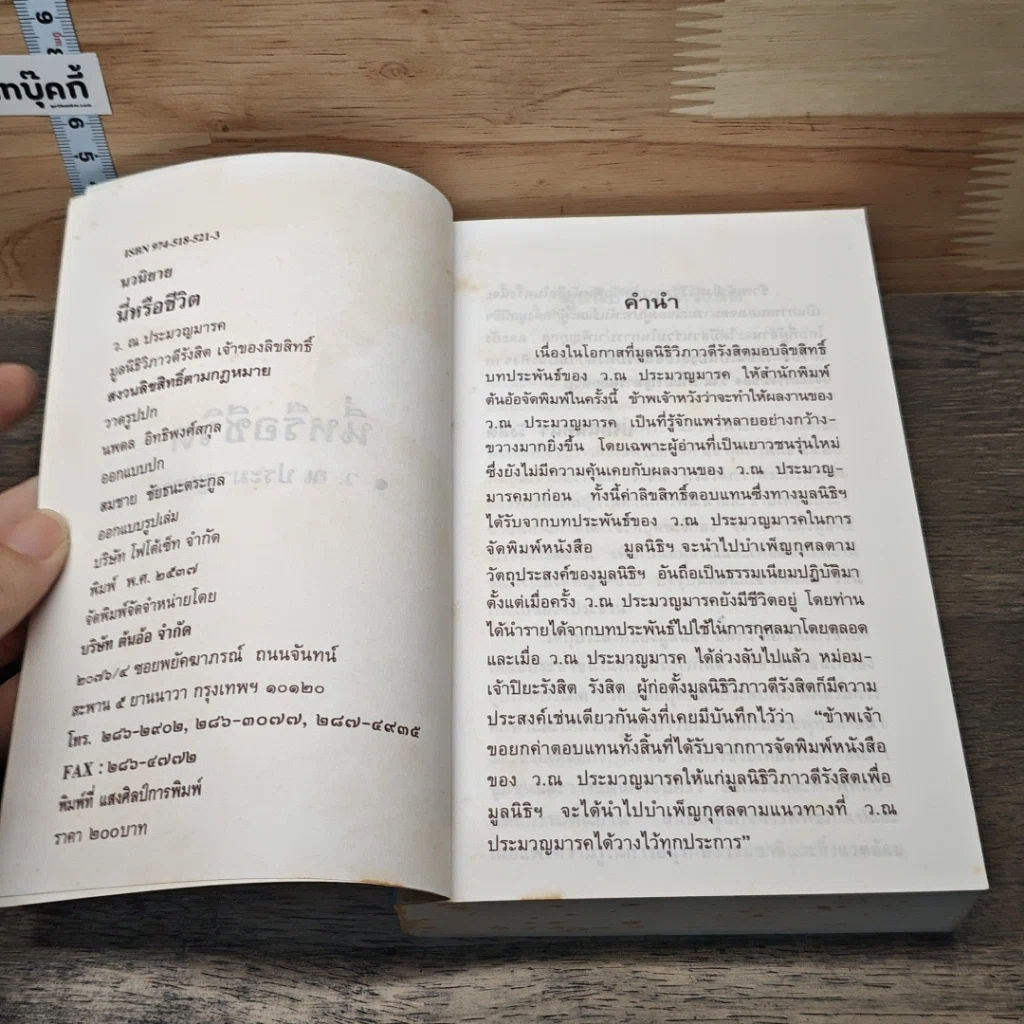 ทบุ๊คกี้
ISBN 974-518-521-3
นวนิยาย
นี่หรือชีวิต
ว. ณ ประมวญมารค
มูลนิธิวิภาวดีรังสิต เจ้าของลิขสิทธิ์
สงวนลิขสิทธิ์ตามกฎหมาย
วาดรูปปก
นพดล อิทธิพงศ์สกุล
ออกแบบปก
สมชาย ชัยธนะตระกูล
ออกแบบรูปเล่ม
บริษัท โฟโต้เซ็ท จำกัด
พิมพ์ พ.ศ. ๒๕๓๗
จัดพิมพ์จัดจำหน่ายโดย
บริษัท ต้นอ้อ จำกัด
๒๐๗๖/๔ ซอยพยัคฆาภรณ์ ถนนจันทน์
สะพาน ๕ ยานนาวา กรุงเทพฯ ๑๐๑๒๐
โทร. ๒๘๖-๒๙๐๒, ๒๘๖-๓๐๗๗, ๒๘๗-๔๙๓๕
FAX : ๒๘๖-๔๗๗๒
พิมพ์ที่ แสงศิลป์การพิมพ์
ราคา ๒๐๐บาท
คำนำ
เนื่องในโอกาสที่มูลนิธิวิภาวดีรังสิตมอบลิขสิทธิ์
บทประพันธ์ของ ว.ณ ประมวญมารค ให้สำนักพิมพ์
ต้นอ้อจัดพิมพ์ในครั้งนี้ ข้าพเจ้าหวังว่าจะทำให้ผลงานของ
ว.ณ ประมวญมารค เป็นที่รู้จักแพร่หลายอย่างกว้าง-
ขวางมากยิ่งขึ้น โดยเฉพาะผู้อ่านที่เป็นเยาวชนรุ่นใหม่
ซึ่งยังไม่มีความคุ้นเคยกับผลงานของ ว.ณ ประมวญ-
มารคมาก่อน ทั้งนี้ค่าลิขสิทธิ์ตอบแทนซึ่งทางมูลนิธิฯ
ได้รับจากบทประพันธ์ของ ว.ณ ประมวญมารคในการ
จัดพิมพ์หนังสือ มูลนิธิฯ จะนำไปบำเพ็ญกุศลตาม
วัตถุประสงค์ของมูลนิธิฯ อันถือเป็นธรรมเนียมปฏิบัติมา
ตั้งแต่เมื่อครั้ง ว.ณ ประมวญมารคยังมีชีวิตอยู่ โดยท่าน
ได้นำรายได้จากบทประพันธ์ไปใช้ในการกุศลมาโดยตลอด
และเมื่อ ว.ณ ประมวญมารค ได้ล่วงลับไปแล้ว หม่อม-
เจ้าปิยะรังสิต รังสิต ผู้ก่อตั้งมูลนิธิวิภาวดีรังสิตก็มีความ
ประสงค์เช่นเดียวกันดังที่เคยมีบันทึกไว้ว่า “ข้าพเจ้า
ขอยกค่าตอบแทนทั้งสิ้นที่ได้รับจากการจัดพิมพ์หนังสือ
ของ ว.ณ ประมวญมารคให้แก่มูลนิธิวิภาวดีรังสิตเพื่อ
มูลนิธิฯ จะได้นำไปบำเพ็ญกุศลตามแนวทางที่ ว.ณ
ประมวญมารคได้วางไว้ทุกประการ”